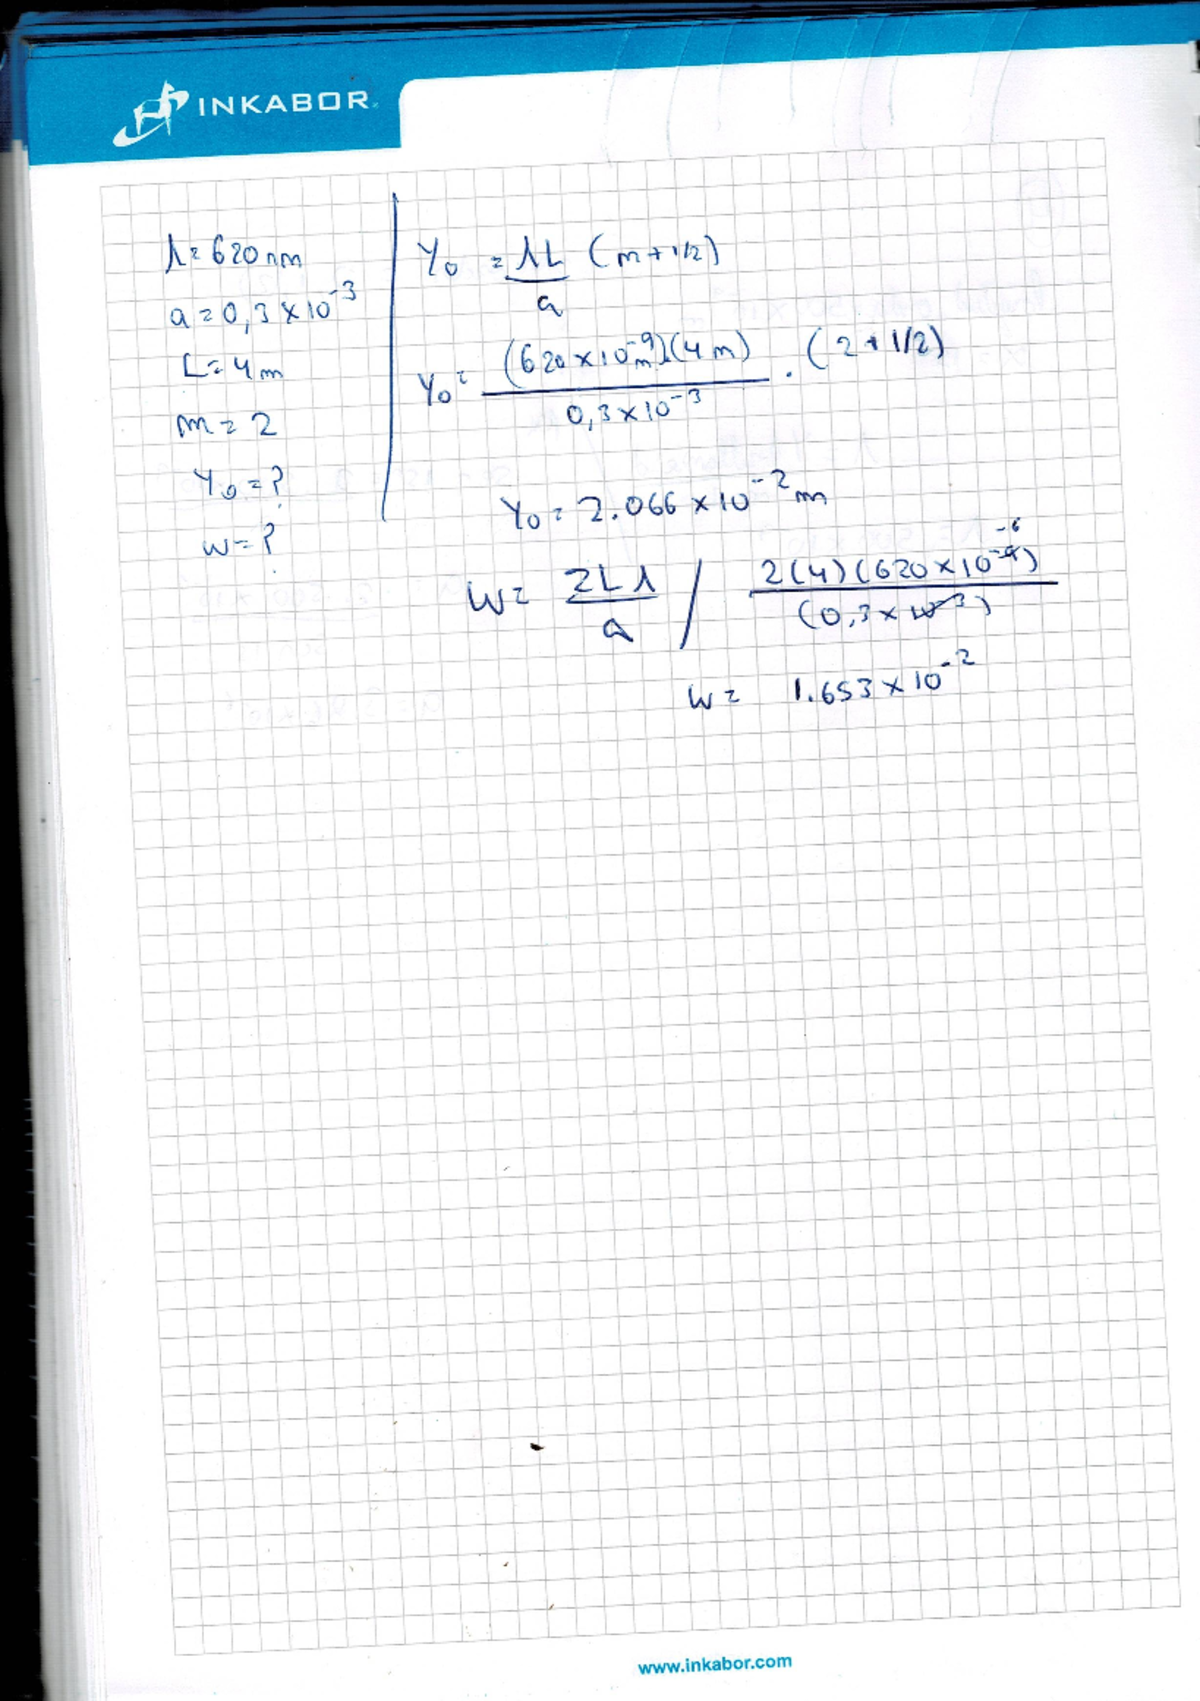 INKABOR
λ = 620 nm
a = 0,3 × 10⁻³
L = 4 m
m = 2
Y₀ = ?
w = ?
Y₀ = λL/a (m + 1/2)
Y₀ = (620 × 10⁻⁹ m)(4 m) / 0,3 × 10⁻³ . (2 + 1/2)
Y₀ = 2.066 × 10⁻² m
W = 2Lλ/a / 2(4)(620 × 10⁻⁶) / (0,3 × 10⁻³)
W = 1.653 × 10⁻²
www.inkabor.com